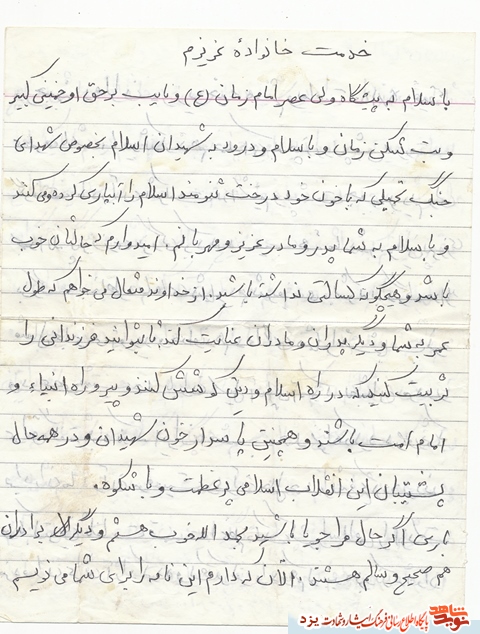 خدمت خانوادهٔ عزیزم
با سلام به پیشگاه ولی عصر امام زمان (عج) و نایب برحق او خمینی کبیر
و بت شکن زمان و با سلام و درود به شهیدان اسلام بخصوص شهدای
جنگ تحمیلی که با خون خود درخت تنومند اسلام را آبیاری کرده و می کنند
و با سلام به شما پدر و مادر عزیز و مهربانم. امیدوارم که حالتان خوب
باشد و هیچگونه کسالتی نداشته باشید. از خداوند متعال می خواهم که طول
عمر به شما و دیگر پدران و مادران عنایت کند تا بتوانید فرزندانی را
تربیت کنید که در راه اسلام و دین کوشش کنند و پیرو راه انبیاء و
امام امت باشند و همچنین پاسدار خون شهیدان و در همه حال
پشتیبان این انقلاب اسلامی پرعظمت و با شکوه.
باری اگر حال مرا جویا باشید بحمد الله خوب هستم و دیگر برادران
هم صحیح و سالم هستند. الآن که دارم این نامه را برای شما می نویسم
نوید شاهد
پایگاه اطلاع رسانی فرهنگ ایثار و شهادت یزد